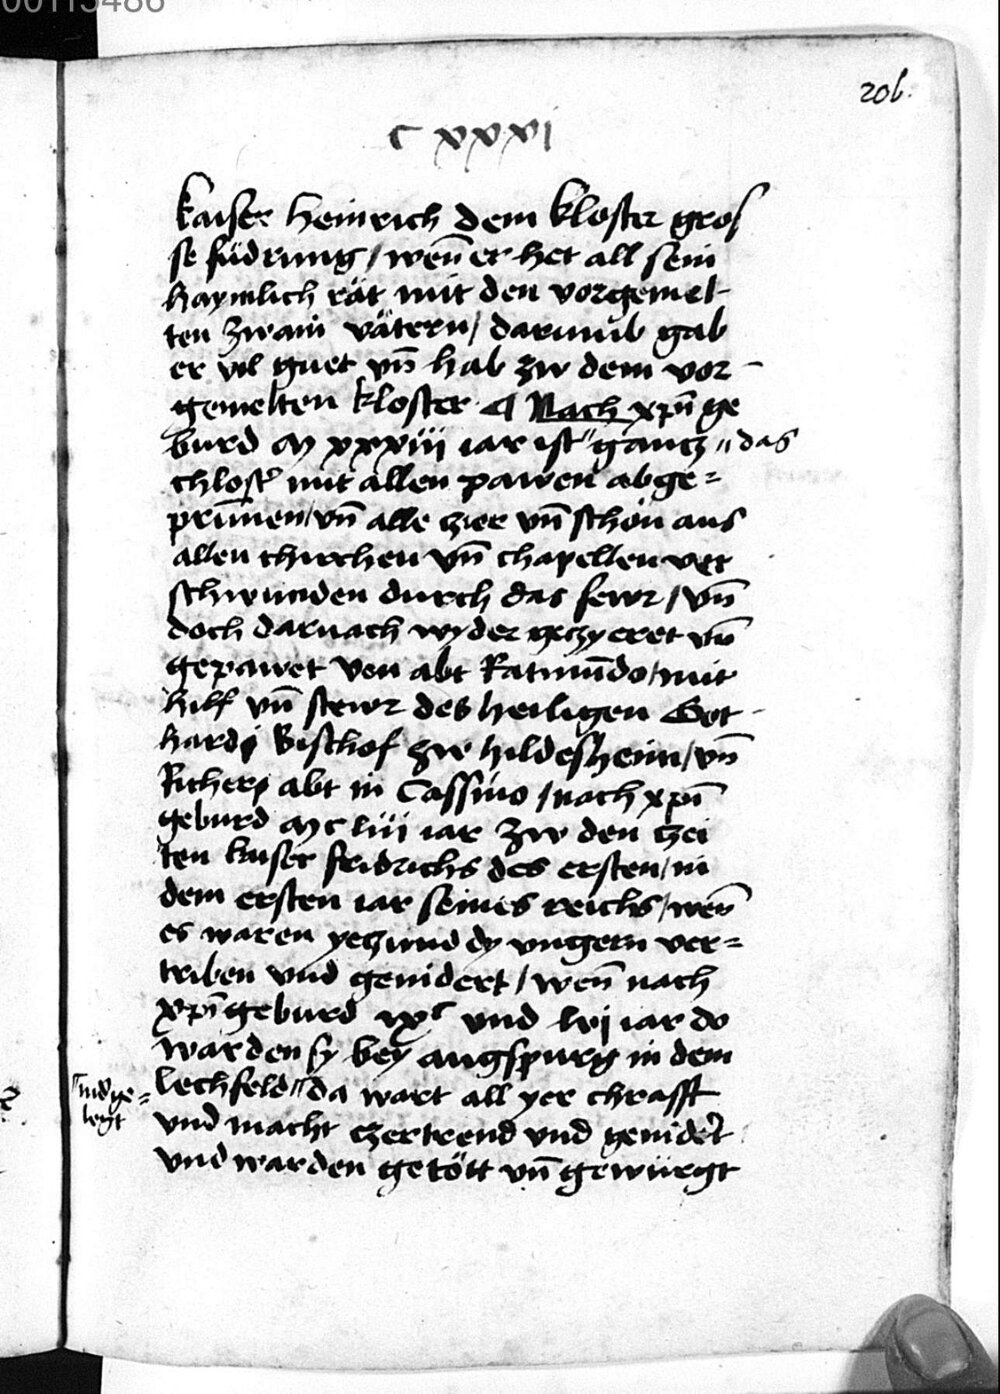 00115486
206.
C xxxi
kaiser Heinrich dem kloster gros
se füdrung / wen̄ er het all sein
haymlich rät mit den vorgemel-
ten zwain vätern / darumb gab
er vil guet vn̄ hab zw dem vor-
gemelten kloster ¶ Nach xpī ge
burd M xxxiii iar ist "gancz" das
chlost' mit allen pawen abge=
prūnen / vn̄ alle zier vn̄ schön aus
allen chirchen vn̄ chapellen ver
schwunden durch das fewr / vn̄
doch darnach wyder geczyeret vn̄
gepawet von abt Ratmūdo / mit
hilf vn̄ stewr des heiligen Got-
hardi Bischof zw hildesheim / vn̄
Richeri abt in Cassino / nach xpī
geburd M c liii iar zw den czei
ten kaiser fridrichs des ersten / in
dem ersten iar seines reichs / wen̄
es waren yeczund dy vngern ver=
triben und genidert / wen̄ nach
xpī geburd ixc und lvi iar do
warden sy bey augspurg in dem
lechfeld " da wart all yer chrafft
"nidge=
legt
und macht czertrend und genidert
und warden getött vn̄ gewürgt